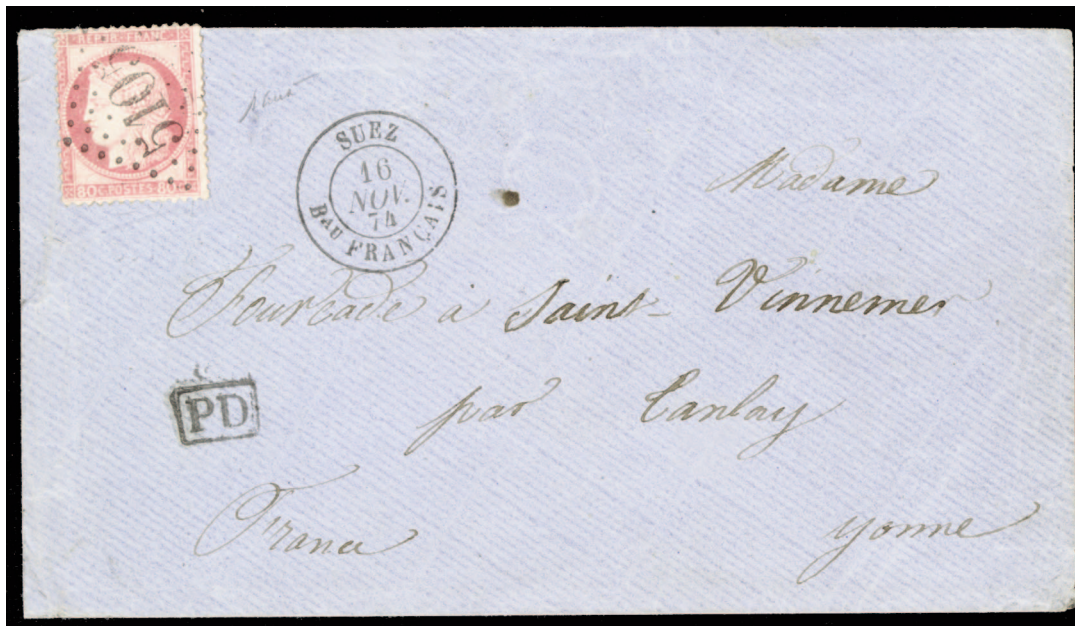 REPUB·FRANC·
5105
80c·POSTES·80c
SUEZ
16
NOV.
74
Bau FRANÇAIS
Madame
Fourcade à Saint-Vinnemer
PD
par Tanlay
France
yonne